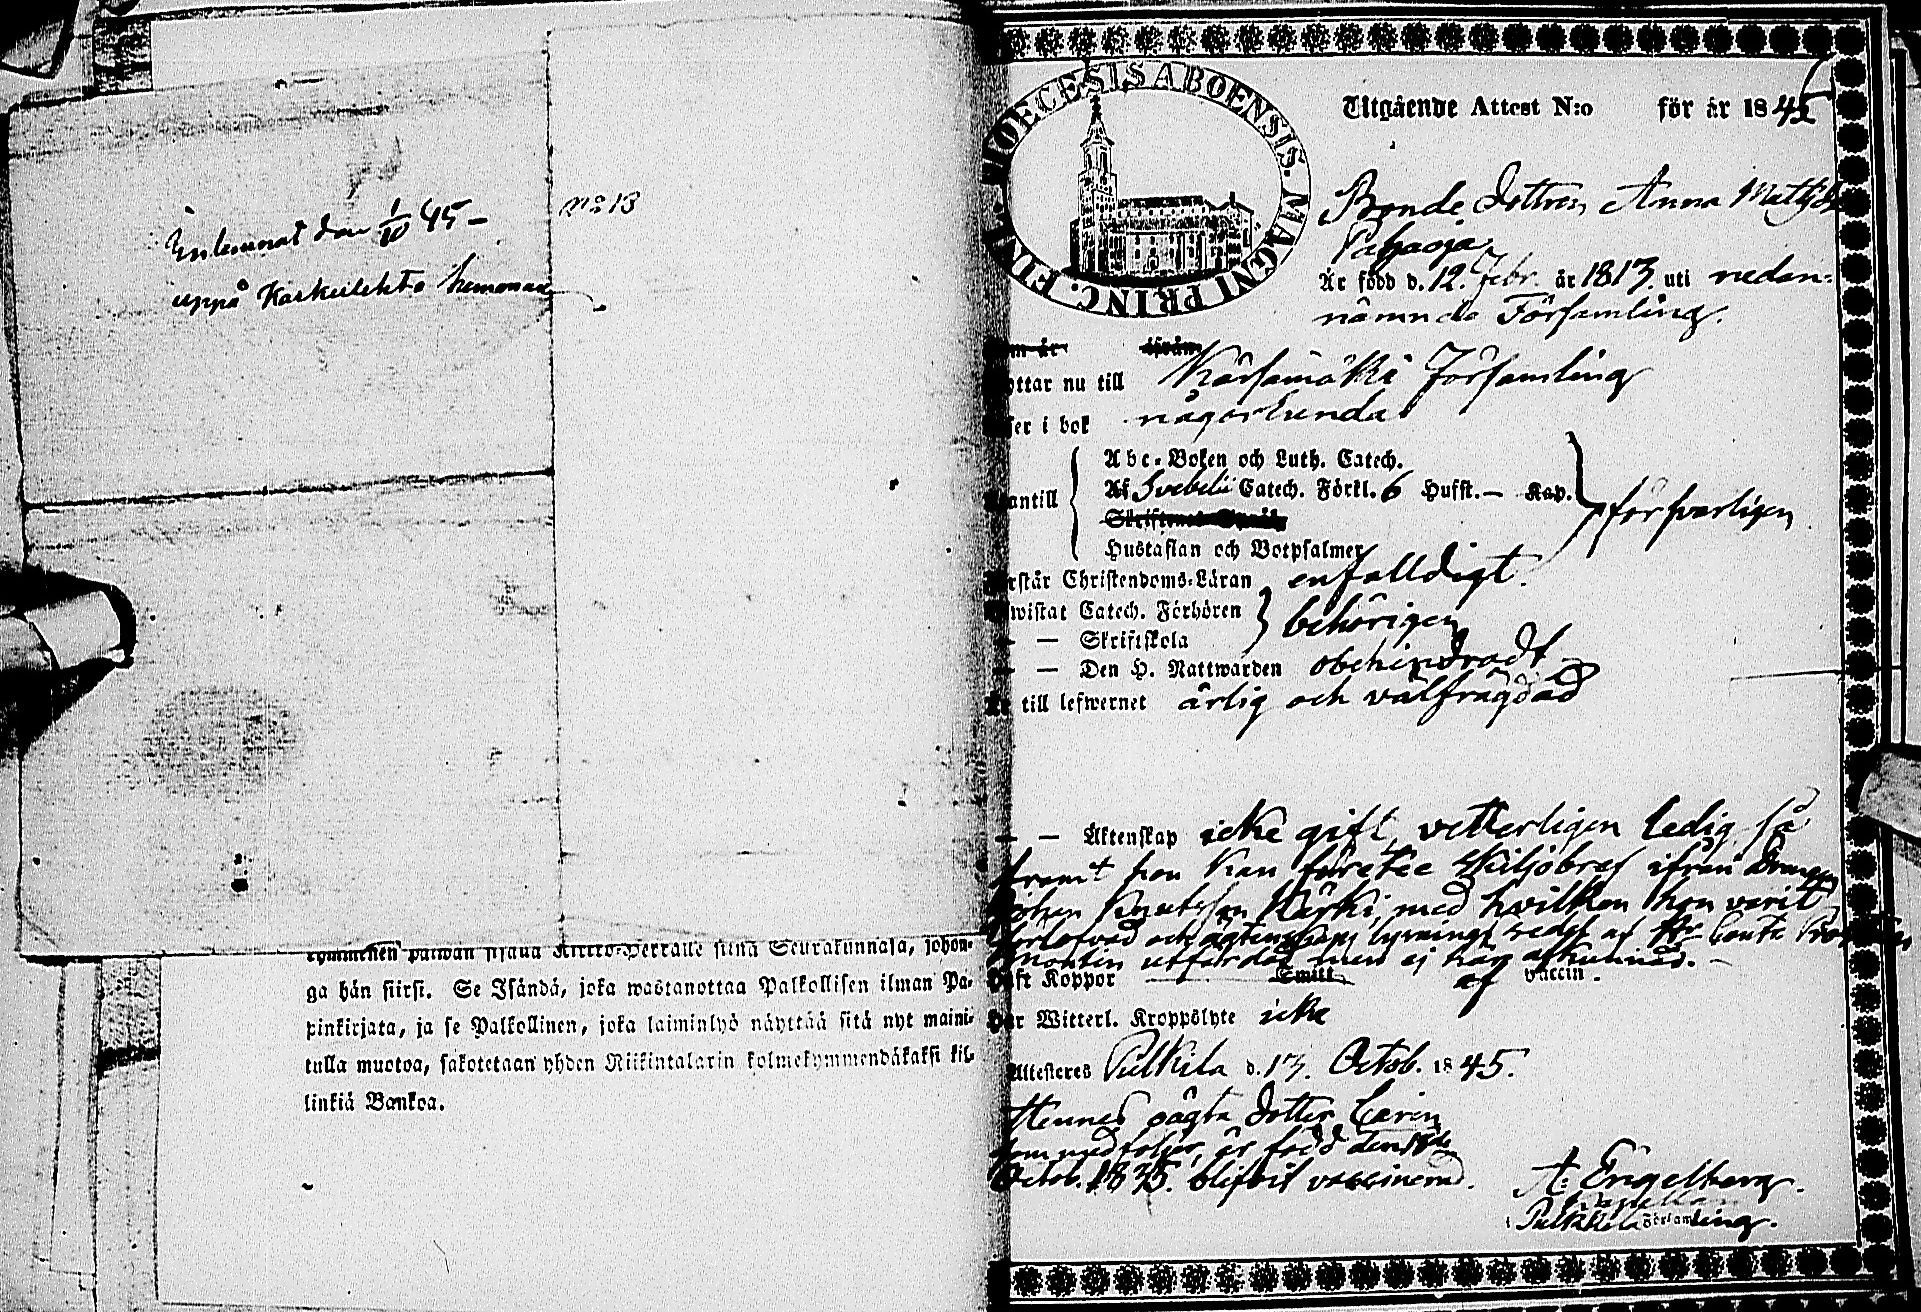 Inlemnat den 1/10 45 –
uppå Karkulehto hemman
No 13
kymmenen päiwän sisällä Kirkko-Herralle siinä Seurakunnasa, johon-
ga hän siirst. Se Isändä, joka wastanottaa Palkollisen ilman Pa-
pinkirjata, ja se Palkollinen, joka laiminlyö näyttää sitä nyt maini-
tulla muotoa, sakotetaan yhden Riikintalarin kolmekymmendäkaksi kil-
linkiä Bankoa.
DIOECESIS ABOENSIS. MAGNI PRINC. FINL.
Utgående Attest N:o för år 1845
Bonde dottren Anna Mattsdr
Pahaoja
Är född d. 12. Febr. år 1813. uti nedan-
nämnda Församling.
ifrån
ottar nu till Kärsämäki Församling
ser i bok någorlunda
Abc-Boken och Luth. Catech.
Af Svebelii Catech. Förkl. 6 Hufst. – Kap.
antill försvarligen
Skriftenes Språk
Hustaflan och Botpsalmer
rstår Christendoms-Läran enfalldigt.
wistat Catech. Förhören
behörigen
— Skriftskola
— — Den H. Nattwarden obehindradt
Är till lefwernet ärlig och välfrägdad
— — Äktenskap icke gift, vetterligen ledig så
framt hon kan förete skiljobref ifrån Drengen
Knutsson Kärki, med hvilken hon varit
förlofvad och ägtenskaps lysning redes af
utfärdat men ej här afkunnad. –
Haft Koppor Smitt af Vaccin.
Har Witterl. Kroppslyte icke
Attesteres Pulkila d. 13. Octob. 1845.
Hennes oägta dotter Carin
som medföljer, är född den 18de
Octob. 1835. blifvit vaccinerad.
A: Engelberg.
Capellan
i Pulkkila Församling.